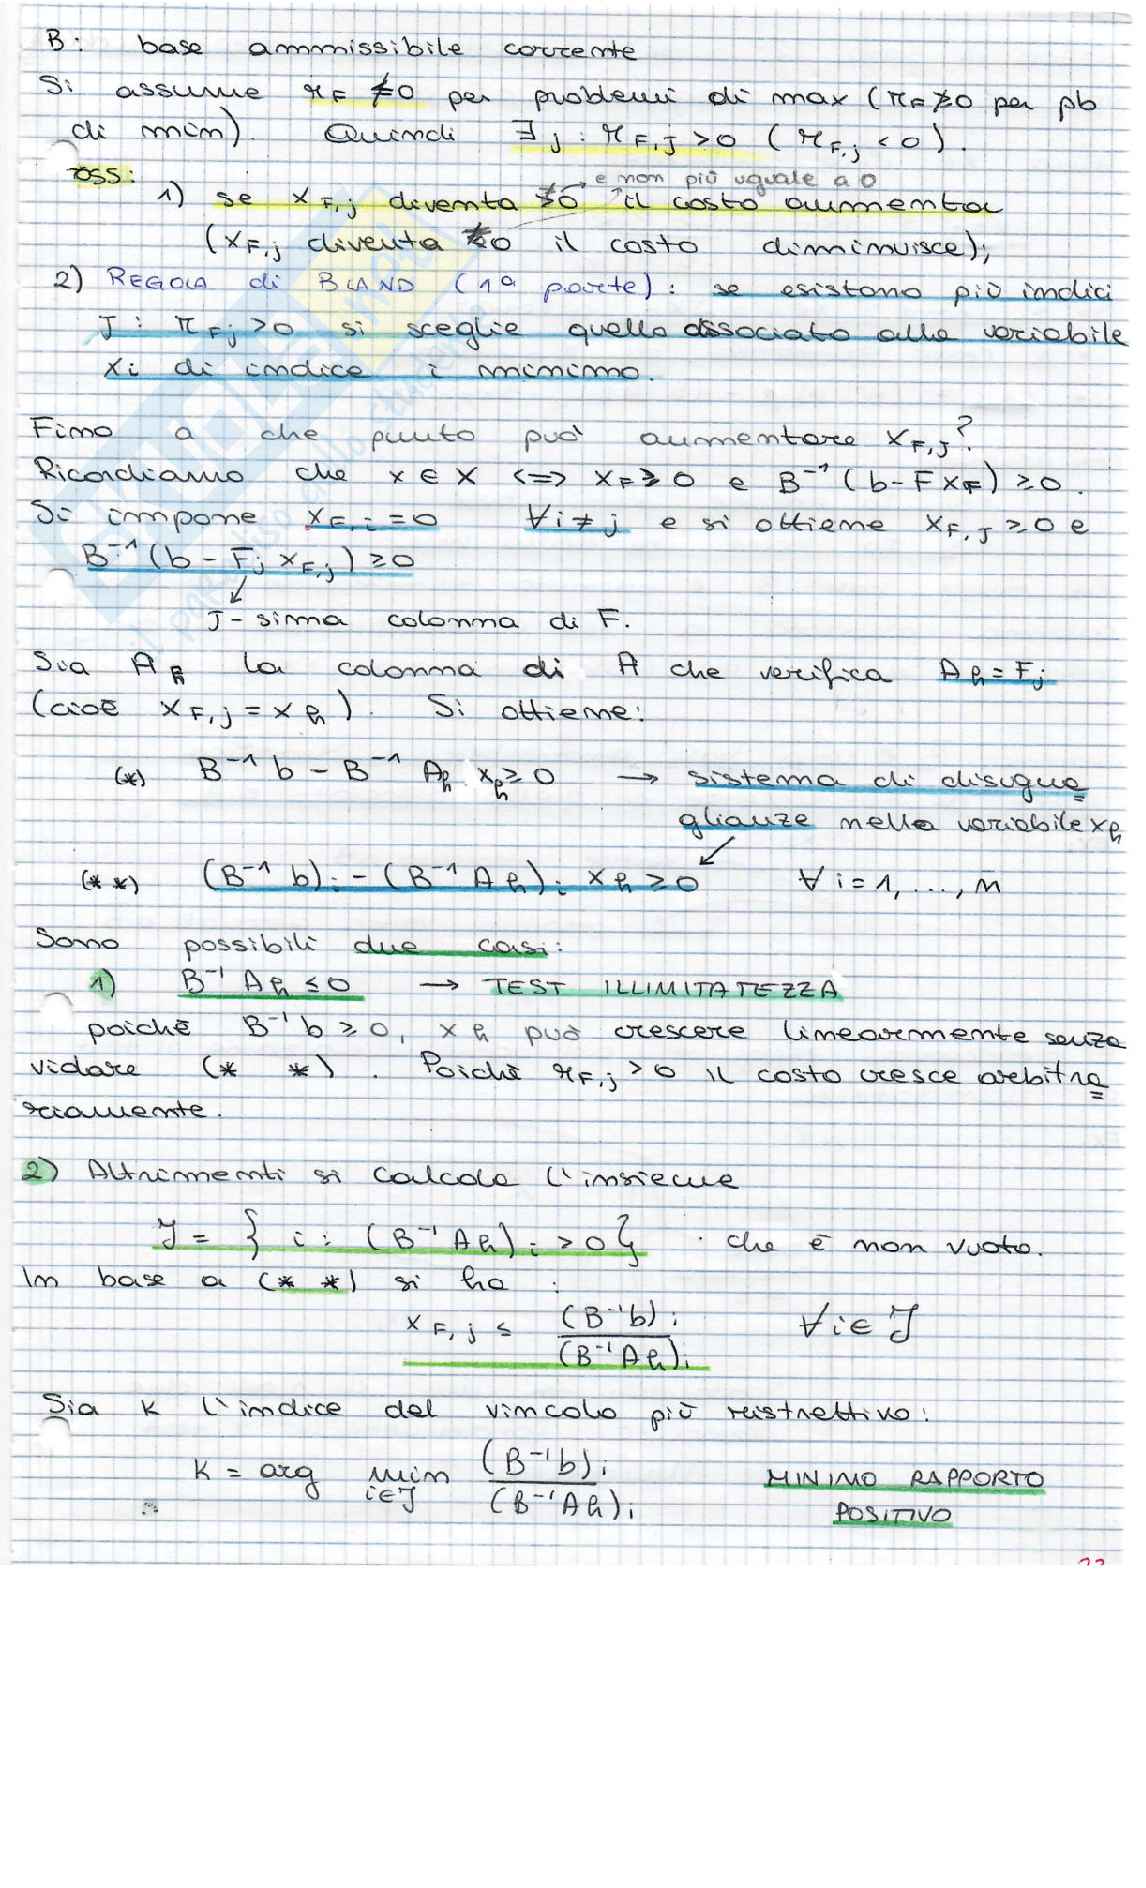 B: base ammissibile corrente
Si assume r_F ≰ 0 per problemi di max (r_F ≱ 0 per pb
di min). Quindi ∃ j : r_F,j > 0 (r_F,j < 0).
oss:
e non più uguale a 0
1) se x_F,j diventa il costo aumenta
(x_F,j diventa il costo diminuisce);
2) REGOLA di BLAND (1ª parte): se esistono più indici
J : r_Fj > 0 si sceglie quello associato alla variabile
xi di indice i minimo.
Fino a che punto può aumentare x_F,j?
Ricordiamo che x ∈ X <=> x_F ≥ 0 e B⁻¹(b - F x_F) ≥ 0.
Si impone x_F,i = 0 ∀ i ≠ j e si ottiene x_F,J ≥ 0 e
B⁻¹(b - Fj x_F,j) ≥ 0
J-sima colonna di F.
Sia A_h la colonna di A che verifica A_h = Fj
(cioè x_F,j = x_h). Si ottiene:
(*) B⁻¹ b - B⁻¹ A_h x_h ≥ 0 → sistema di disugua
glianze nella variabile x_h
(* *) (B⁻¹ b)i - (B⁻¹ A_h)i x_h ≥ 0 ∀ i = 1, ..., m
Sono possibili due casi:
1) B⁻¹ A_h ≤ 0 → TEST ILLIMITATEZZA
poichè B⁻¹ b ≥ 0, x_h può crescere linearmente senza
violare (* *). Poichè r_F,j > 0 il costo cresce arbitra
riamente.
2) Altrimenti si calcola l'insieme
J = { i : (B⁻¹ A_h)i > 0 } che è non vuoto.
In base a (* *) si ha :
x_F,j ≤ (B⁻¹b)i / (B⁻¹A_h)i ∀ i ∈ J
Sia K l'indice del vincolo più restrittivo:
K = arg min i∈J (B⁻¹b)i / (B⁻¹A_h)i MINIMO RAPPORTO
POSITIVO